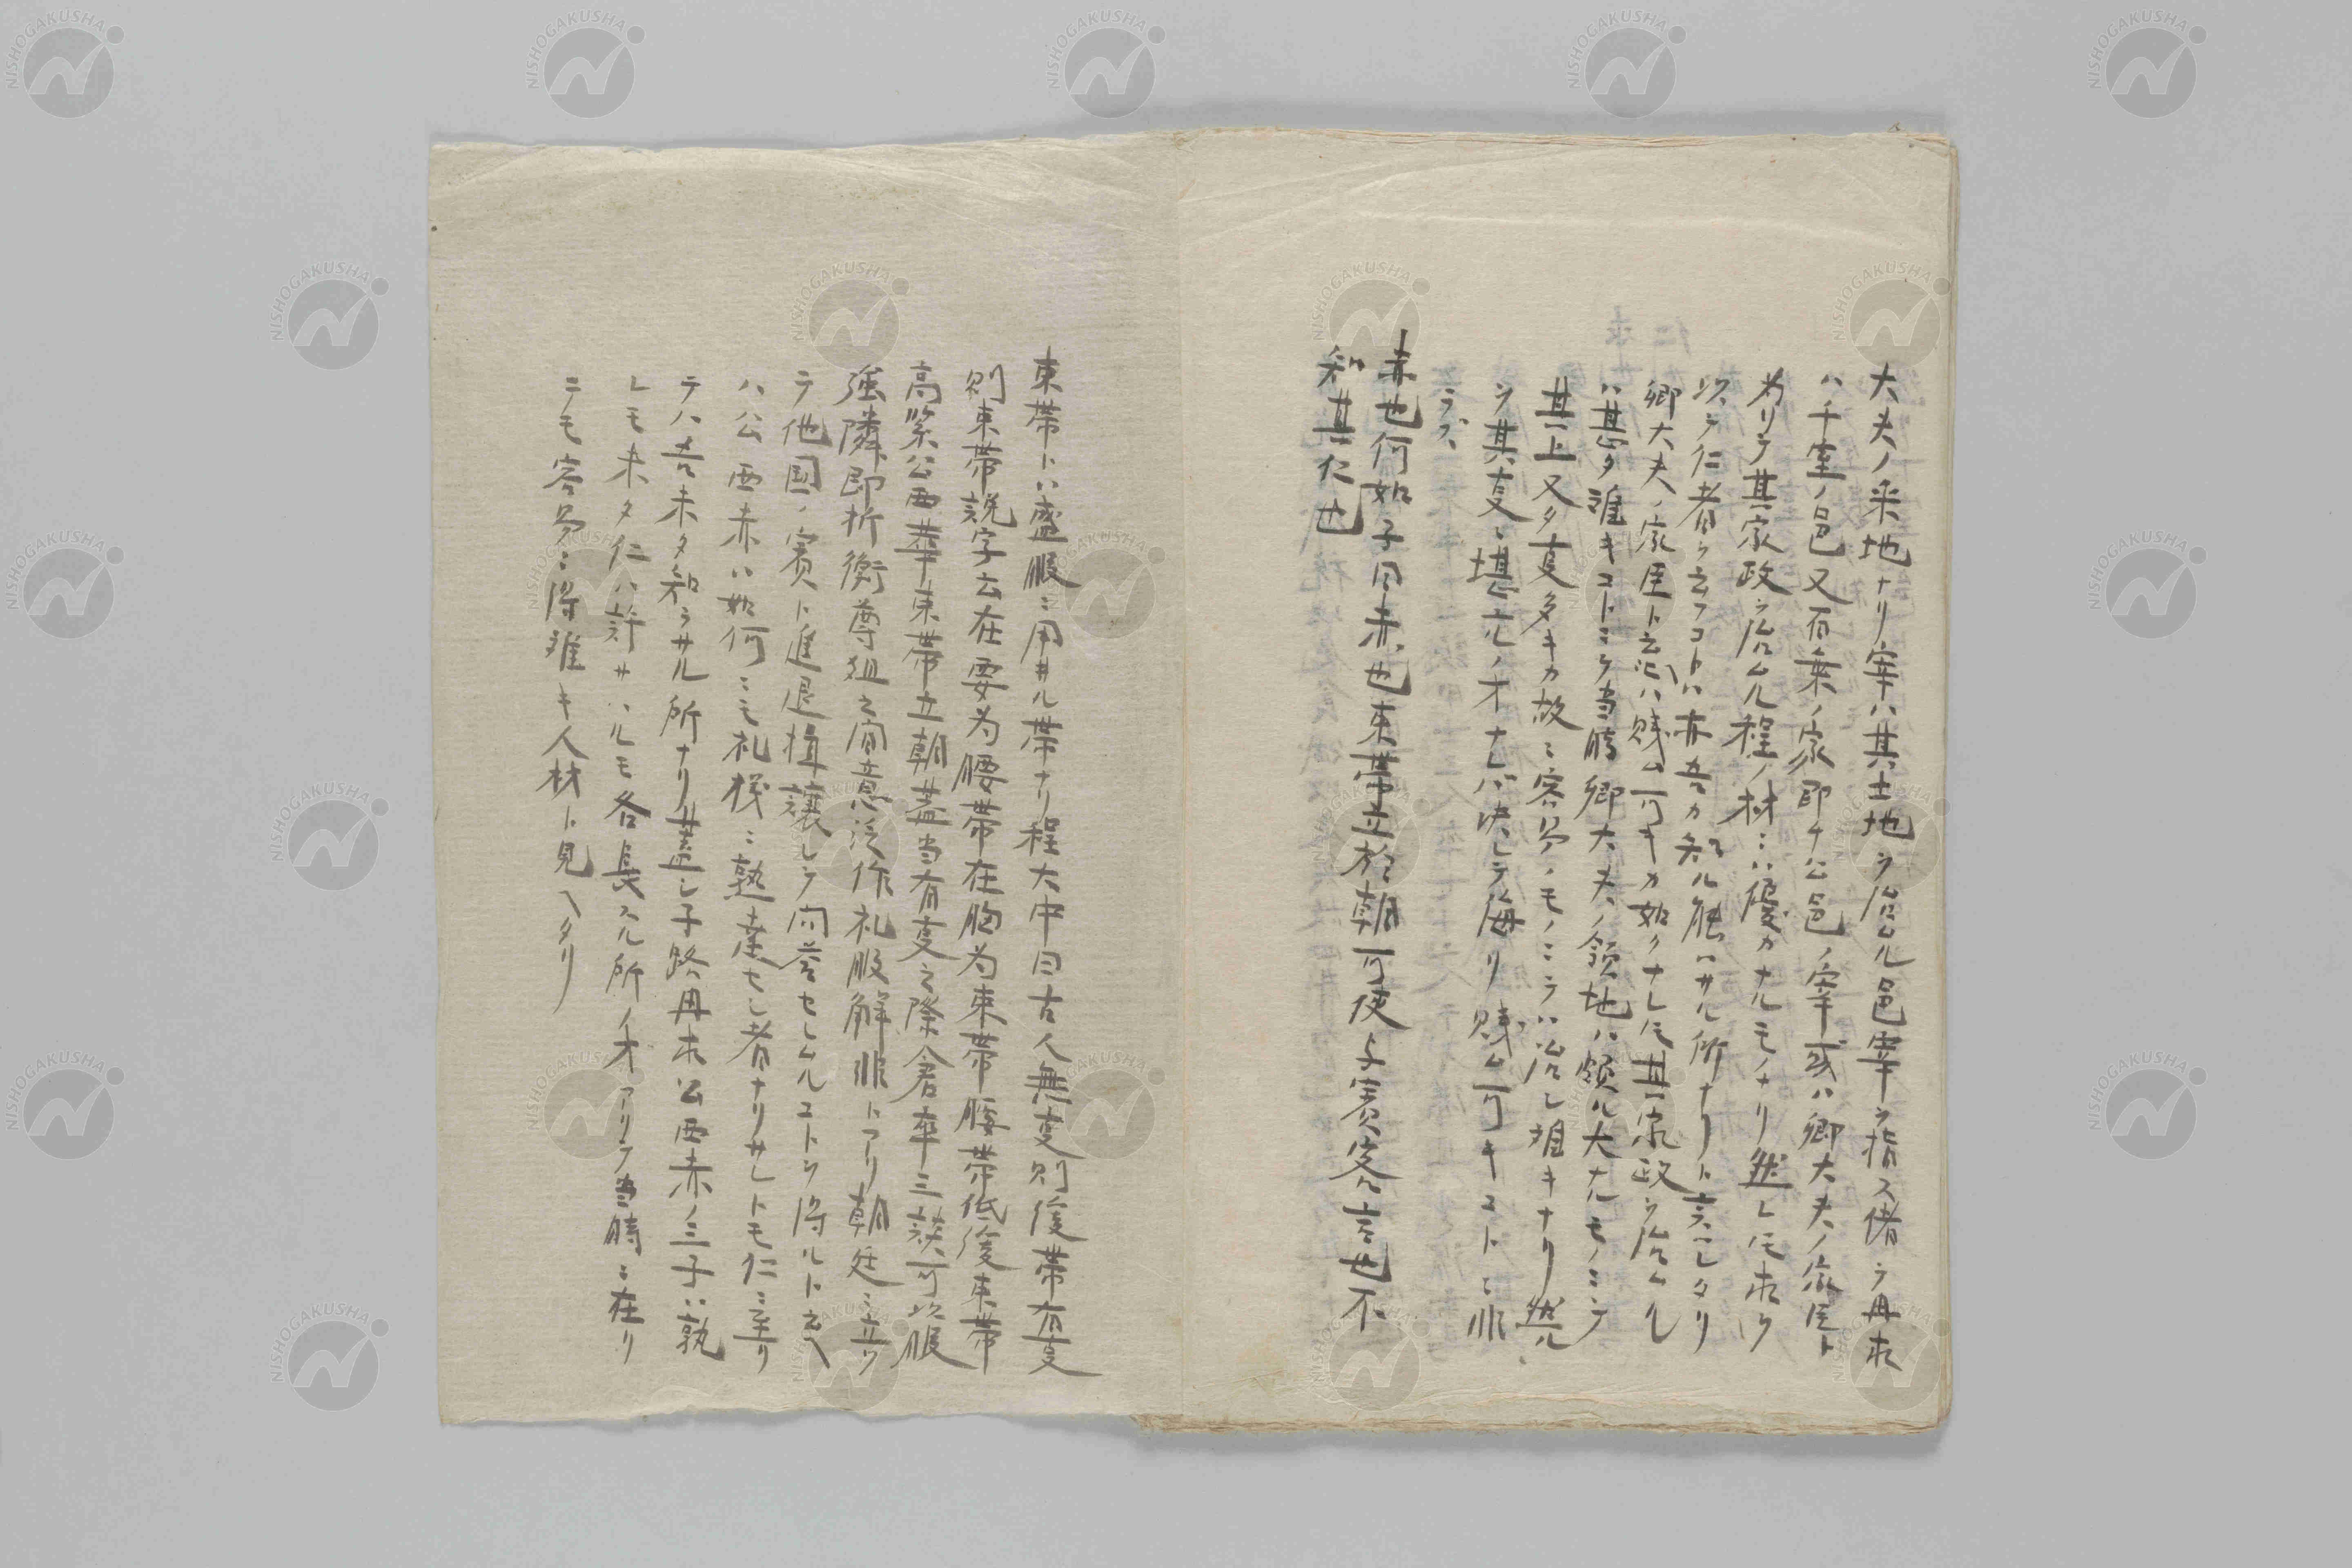 大夫ノ采地ナリ宰ハ其土地ヲ治ムル邑宰ヲ指ス偖テ冉求
ハ千室ノ邑又百乗ノ家即ナ公邑ノ宰或ハ卿大夫ノ家臣ト
為リテ其家政ヲ治ムル程ノ材ニハ優カナルモノナリ然レ𪜈求ヲ
以テ仁者ト云フコトハ亦吾カ知ル能ハサル所ナリト言レタリ
卿大夫ノ家臣ト云ヘハ賎ム可キカ如クナレ𪜈其家政ヲ治ムル
ハ甚タ難キコトニシテ当時卿大夫ノ領地ハ頗ル大ナルモノニシテ
其上又タ叓多キカ故ニ容易ノモノニテハ治レ難キナリ然ル
ヲ其叓ニ堪フルノ才ナレハ決シテ侮リ賎ム可キコトニ非
ラス
赤也何如子曰赤也束帯立於朝可使与賓客言也不
知其仁也
束帯トハ盛服ニ用ヰル帯ナリ程大中曰古人無叓則緩帯有叓
則束帯説字云在要為腰帯在胸為束帯腰帯低緩束帯
高緊公西華束帯立朝蓋当有叓之際倉卒三談可以服
強隣即折衝尊俎之間意泛作礼服解非トアリ朝廷ニ立ツ
テ他国ノ賓ト進退揖譲シテ問答セシムルコトヲ得ルト云ヘ
ハ公西赤ハ如何ニモ礼楼ニ熟達セシ者ナリサレトモ仁ニ至リ
テハ吾未タ知ラサル所ナリ蓋シ子路冉求公西赤ノ三子ハ孰
レモ未タ仁ハ許サヽルモ各長スル所ノ才アリテ当時ニ在リ
ニモ容易ニ得難キ人材ト見ヘタリ
NISHOGAKUSHA